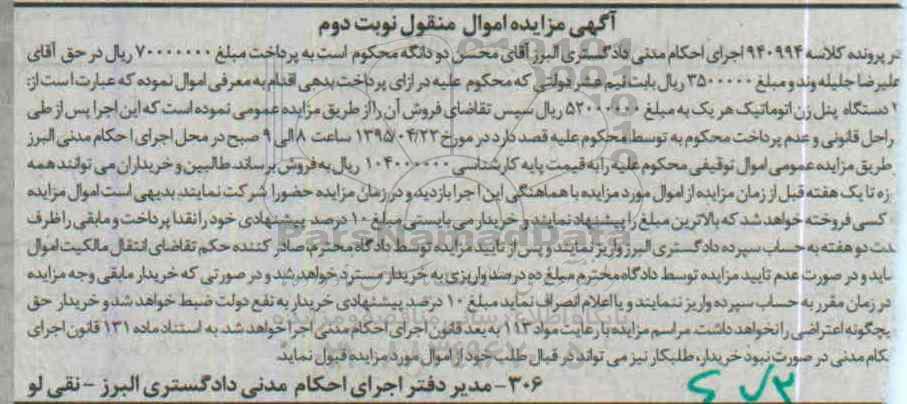 آگهی مزایده اموال منقول نوبت دوم
در پرونده کلاسه ۹۴۰۹۹۴ اجرای احکام مدنی دادگستری البرز آقای محسن دو دانگه محکوم است به پرداخت مبلغ ۷۰۰۰۰۰۰۰ ریال در حق آقای
علیرضا جلیله وند و مبلغ ۳۵۰۰۰۰۰ ریال بابت نیم عشر دولتی که محکوم علیه در ازای پرداخت بدهی اقدام به معرفی اموال نموده که عبارت است از:
۲ دستگاه پنل زن اتوماتیک هر یک به مبلغ ۵۲۰۰۰۰۰۰ ریال سپس تقاضای فروش آن را از طریق مزایده عمومی نموده است که این اجرا پس از طی
راحل قانونی و عدم پرداخت محکوم به توسط محکوم علیه قصد دارد در مورخ ۱۳۹۵/۰۴/۲۳ ساعت ۸ الی ۹ صبح در محل اجرای احکام مدنی البرز
طریق مزایده عمومی اموال توقیفی محکوم علیه را به قیمت پایه کارشناسی ۱۰۴۰۰۰۰۰۰ ریال به فروش برساند. طالبین و خریداران می توانند همه
زه تا یک هفته قبل از زمان مزایده از اموال مورد مزایده با هماهنگی این اجرا بازدید و در زمان مزایده حضورا شرکت نمایند. بدیهی است اموال مزایده
کسی فروخته خواهد شد که بالاترین مبلغ را پیشنهاد نمایند و خریدار می بایستی مبلغ ۱۰ درصد پیشنهادی خود را نقدا پرداخت و مابقی را ظرف
دت دو هفته به حساب سپرده دادگستری البرز واریز نمایند و پس از تایید مزایده توسط دادگاه محترم، صادر کننده حکم تقاضای انتقال مالکیت اموال
ماید و در صورت عدم تایید مزایده توسط دادگاه محترم مبلغ ده درصد واریزی به خریدار مسترد خواهد شد و در صورتی که خریدار مابقی وجه مزایده
در زمان مقرر به حساب سپرده واریز ننمایند و یا اعلام انصراف نماید مبلغ ۱۰ درصد پیشنهادی خریدار به نفع دولت ضبط خواهد شد و خریدار حق
یچگونه اعتراضی را نخواهد داشت. مراسم مزایده با رعایت مواد ۱۱۳ به بعد قانون اجرای احکام مدنی اجرا خواهد شد. به استناد ماده ۱۳۱ قانون اجرای
کام مدنی در صورت نبود خریدار، طلبکار نیز می تواند در قبال طلب خود از اموال مورد مزایده قبول نماید.
۳۰۶- مدیر دفتر اجرای احکام مدنی دادگستری البرز - نقی لو
ParsNamadData